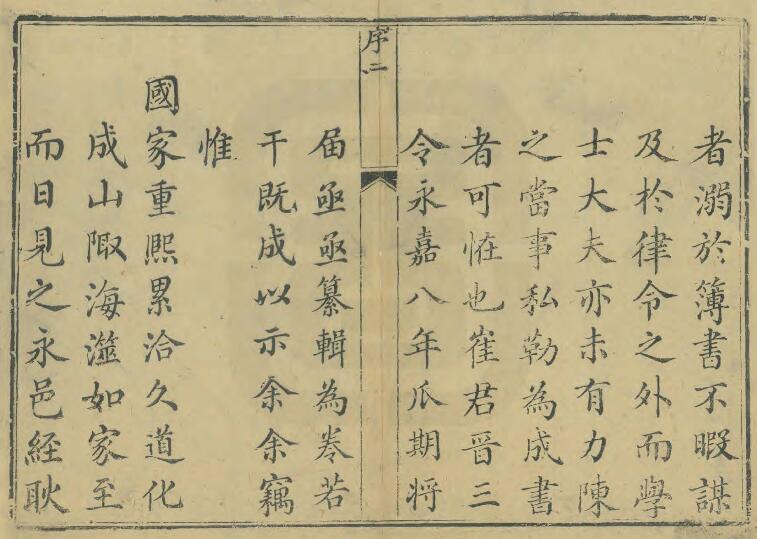 者溺於簿書不暇謀
及於律令之外而學
士大夫亦未有力陳
之當事私勒為成書
者可恠也崔君晉三
令永嘉八年瓜期將
序二
届亟亟纂輯為卷若
干既成以示余余竊
惟
國家重熈累洽久道化
成山陬海澨如家至
而日見之永邑経耿